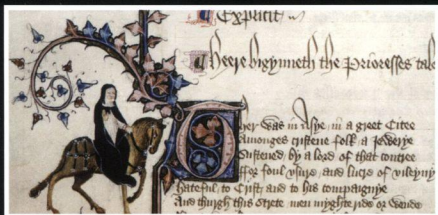 Explicit
Heere bigynneth the Prioresses tale
Ther was in Asye in a greet Citee
Amonges cristene folk a Jewerye
Sustened by a lord of that contree
ffor foul vsure and lucre of vileynye
hateful to Crist and to his compaignye
And thurgh this strete men myghte ride or wende